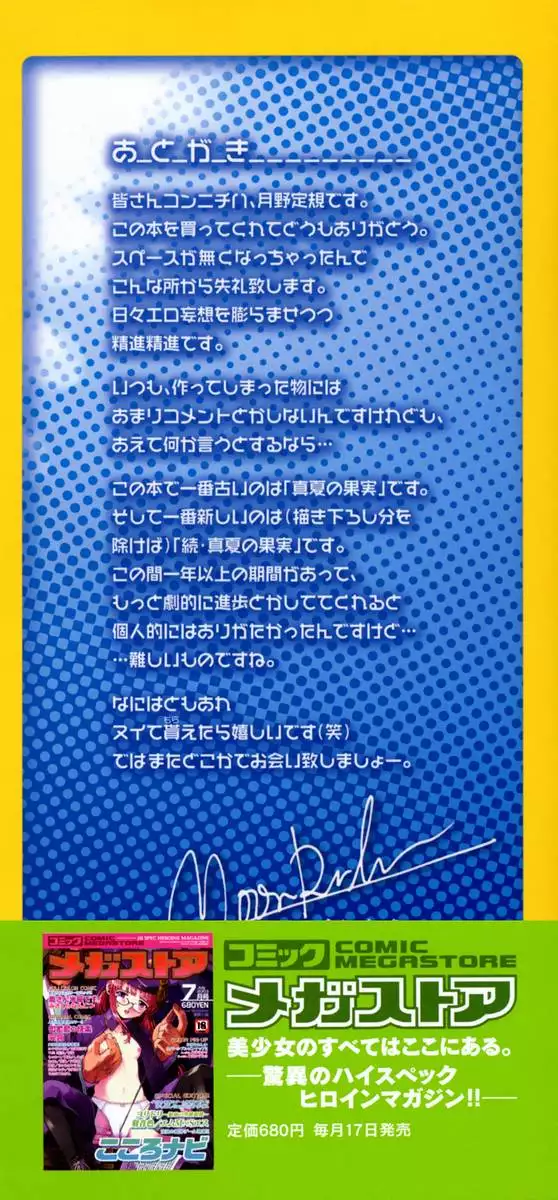 あ_と_が_き_________
皆さんコンニチハ、月野定規です。
この本を買ってくれてどうもありがとう。
スペースが無くなっちゃったんで
こんな所から失礼致します。
日々エロ妄想を膨らませつつ
精進精進です。
いつも、作ってしまった物には
あまりコメントとかしないんですけれども、
あえて何か言うとするなら…
この本で一番古いのは「真夏の果実」です。
そして一番新しいのは(描き下ろし分を
除けば)「続・真夏の果実」です。
この間一年以上の期間があって、
もっと劇的に進歩とかしててくれると
個人的にはありがたかったんですけど…
…難しいものですね。
なにはともあれ
ヌイて貰えたら嬉しいです(笑)
もら
ではまたどこかでお会い致しましょー。
コミック COMIC MEGASTORE
メガストア
美少女のすべてはここにある。
―驚異のハイスペック
ヒロインマガジン!!―
定価680円 毎月17日発売
コミック COMIC MEGASTORE
メガストア
7月号
680YEN
18
こころナビ